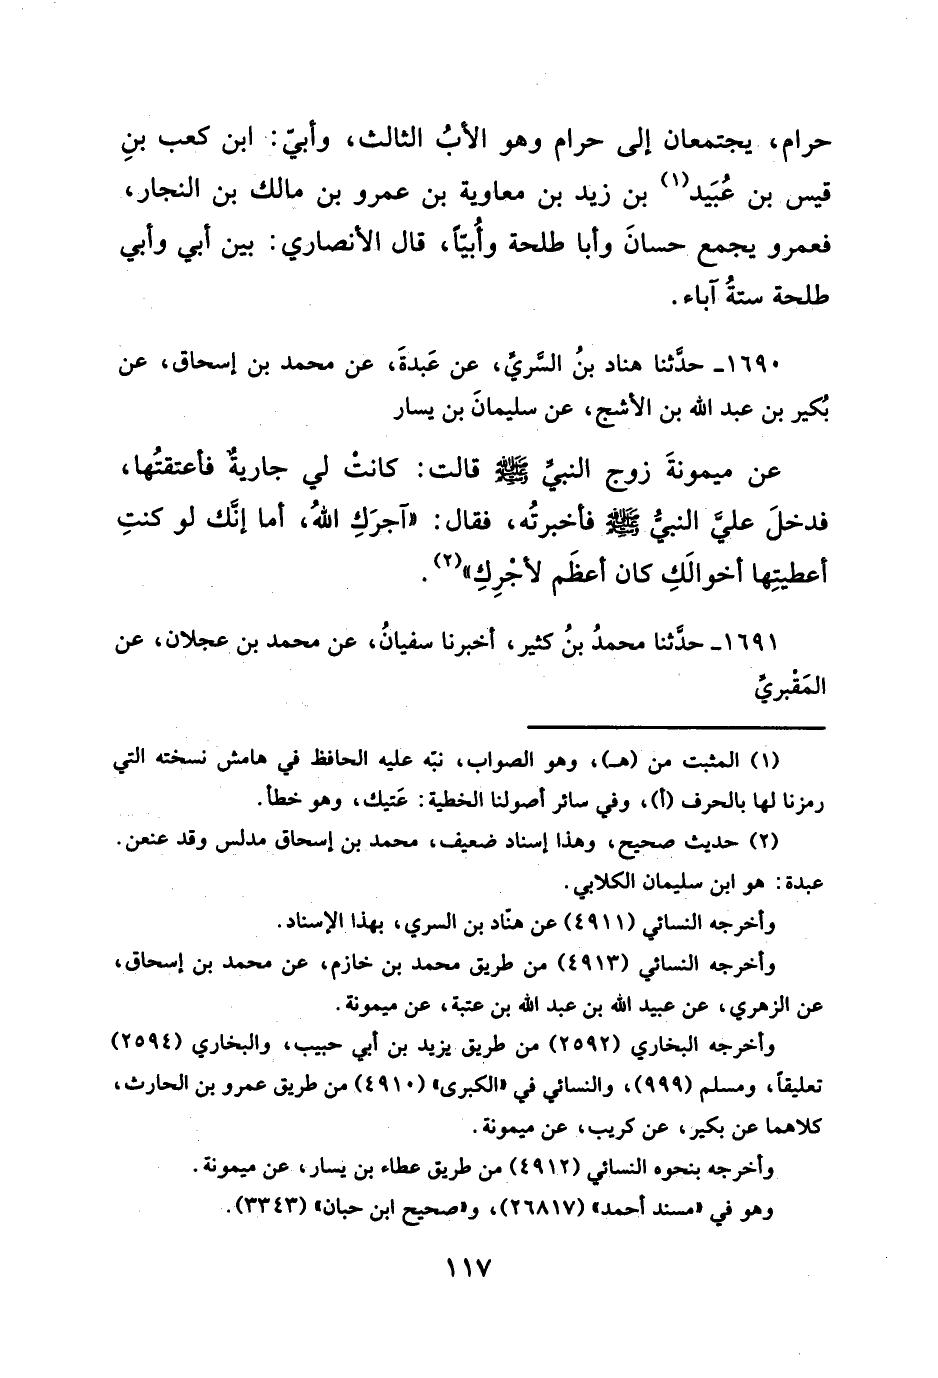 حرام، يجتمعان إلى حرام وهو الأبُ الثالث، وأبيّ: ابن كعب بنِ
قيس بن عُبَيد(١) بن زيد بن معاوية بن عمرو بن مالك بن النجار،
فعمرو يجمع حسانَ وأبا طلحة وأُبيّاً، قال الأنصاري: بين أبي وأبي
طلحة ستةُ آباء.
١٦٩٠ـ حدَّثنا هناد بنُ السَّريِّ، عن عَبدةَ، عن محمد بن إسحاق، عن
بُكير بن عبد الله بن الأشج، عن سليمانَ بن يسار
عن ميمونةَ زوج النبيِّ ﷺ قالت: كانتْ لي جاريةٌ فأعتقتُها،
فدخلَ عليَّ النبيُّ ﷺ فأخبرتُه، فقال: «آجرَكِ اللهُ، أما إنَّك لو كنتِ
أعطيتِها أخوالَكِ كان أعظَم لأجْرِكِ»(٢).
١٦٩١ـ حدَّثنا محمدُ بنُ كثير، أخبرنا سفيانُ، عن محمد بن عجلان، عن
المَقْبريِّ
(١) المثبت من (هـ)، وهو الصواب، نبّه عليه الحافظ في هامش نسخته التي
رمزنا لها بالحرف (أ)، وفي سائر أصولنا الخطية: عَتيك، وهو خطأ.
(٢) حديث صحيح، وهذا إسناد ضعيف، محمد بن إسحاق مدلس وقد عنعن.
عبدة: هو ابن سليمان الكلابي.
وأخرجه النسائي (٤٩١١) عن هنّاد بن السري، بهذا الإسناد.
وأخرجه النسائي (٤٩١٣) من طريق محمد بن خازم، عن محمد بن إسحاق،
عن الزهري، عن عبيد الله بن عبد الله بن عتبة، عن ميمونة.
وأخرجه البخاري (٢٥٩٢) من طريق يزيد بن أبي حبيب، والبخاري (٢٥٩٤)
تعليقاً، ومسلم (٩٩٩)، والنسائي في «الكبرى» (٤٩١٠) من طريق عمرو بن الحارث،
كلاهما عن بكير، عن كريب، عن ميمونة.
وأخرجه بنحوه النسائي (٤٩١٢) من طريق عطاء بن يسار، عن ميمونة.
وهو في «مسند أحمد» (٢٦٨١٧)، و«صحيح ابن حبان» (٣٣٤٣).
١١٧